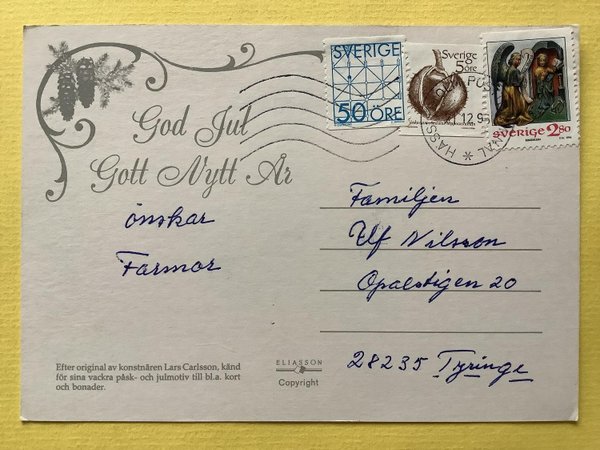 God Jul
Gott Nytt År
önskar
Farmor
SVERIGE
50 ÖRE
Sverige
5 öre
SVERIGE 2.80
HASS
12.9
Familjen
Ulf Nilsson
Opalstigen 20
28235 Tyringe
Efter original av konstnären Lars Carlsson, känd
för sina vackra påsk- och julmotiv till bl.a. kort
och bonader.
ELIASSON
Copyright